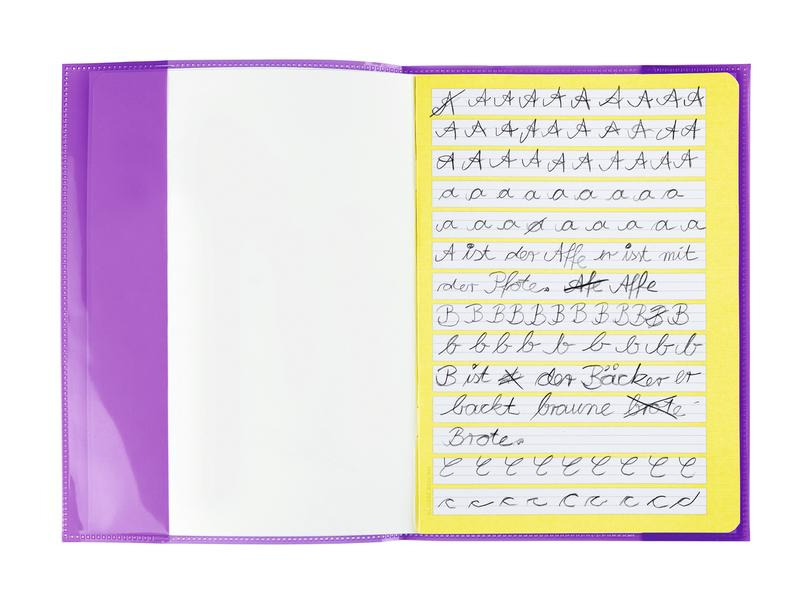 A A A A A A A A A A A
A A A A A A A A A A
A A A A A A A A A A
a a a a a a a a a
a a a a a a a a a
A ist der Affe er ist mit
der Pfote. Afe Affe
B B B B B B B B B B B B
b b b b b b b b b
B ist der Bäcker er
backt braune brote
Brote.
C C C C C C C C C
c c c c c c c c c